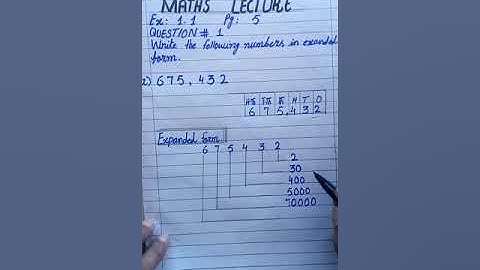 MATHS LECTURE
Ex: 1.1 Pg: 5
QUESTION # 1
Write the following numbers in expanded
form.
a) 675,432
HTh TTh Th H T O
6 7 5, 4 3 2
Expanded form
6 7 5 4 3 2
2
30
400
5000
70000